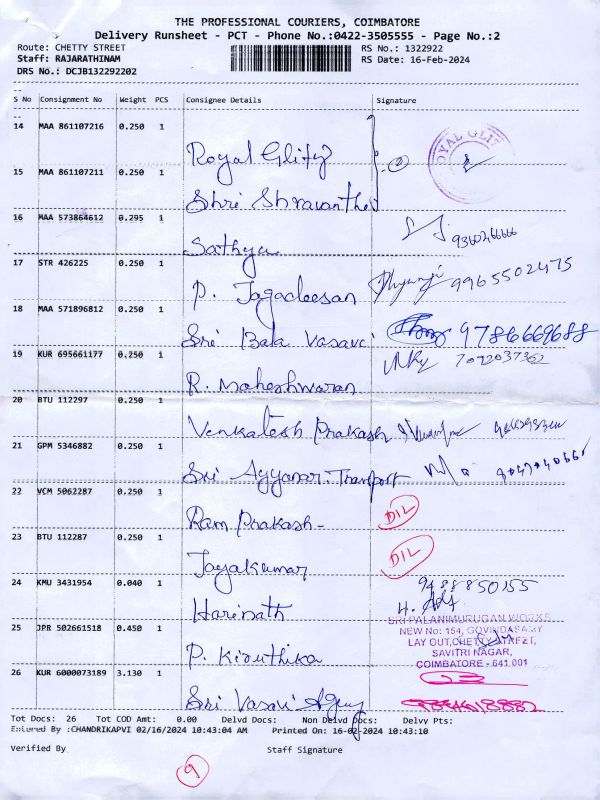 THE PROFESSIONAL COURIERS, COIMBATORE
Delivery Runsheet - PCT - Phone No.:0422-3505555 - Page No.:2
Route: CHETTY STREET RS No.: 1322922
Staff: RAJARATHINAM RS Date: 16-Feb-2024
DRS No.: DCJB132292202
S No Consignment No Weight PCS Consignee Details Signature
14 MAA 861107216 0.250 1
Royal Glitz
ROYAL GLIT
15 MAA 861107211 0.250 1
Shri Shravanthi
16 MAA 573864612 0.295 1
Sathya
17 STR 426225 0.250 1
P. Jagadeesan 9965502475
18 MAA 571896812 0.250 1
Sri Bala Vasavi 9786669688
19 KUR 695661177 0.250 1
R. Maheshwaran 7092037362
20 BTU 112297 0.250 1
Venkatesh Prakash
21 GPM 5346882 0.250 1
Sri Ayyanar Transport
22 VCM 5062287 0.250 1
Ram Prakash - DIL
23 BTU 112287 0.250 1
Jayakumar DIL
24 KMU 3431954 0.040 1
9488850155
Harinath
25 JPR 502661518 0.450 1
SRI PALANIMURUGAN WORKS
NEW No: 154, GOVINDASAMY
LAY OUT, CHETTY STREET,
P. Kiruthika
SAVITRI NAGAR,
COIMBATORE - 641 001
26 KUR 6000073189 3.130 1
Sri Vasavi Agency
Tot Docs: 26 Tot COD Amt: 0.00 Delvd Docs: Non Delvd Docs: Delvy Pts:
Entered By :CHANDRIKAPVI 02/16/2024 10:43:04 AM Printed On: 16-02-2024 10:43:10
Verified By Staff Signature
9